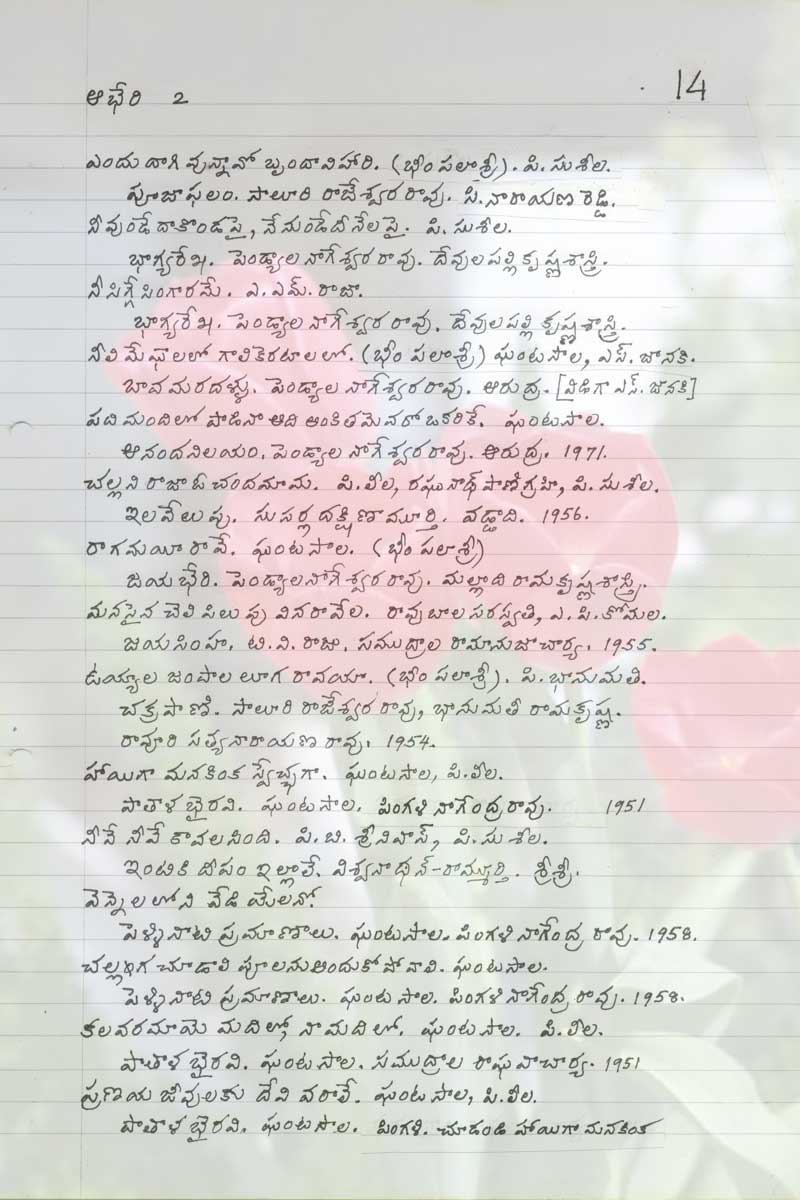 ఆభేరి 2
14
ఎందు దాగి వున్నావో బృందావిహారి. (భీంపలాశ్రీ). పి. సుశీల.
పూజాఫలం. సాలూరి రాజేశ్వర రావు. సి. నారాయణ రెడ్డి.
నీవుండేదా కొండపై, నేనుండేదీ నేలపై. పి. సుశీల.
భాగ్యరేఖ. పెండ్యాల నాగేశ్వర రావు. దేవులపల్లి కృష్ణశాస్త్రి.
నీ సిగ్గే సింగారమే. ఎ. ఎమ్. రాజా.
భాగ్యరేఖ. పెండ్యాల నాగేశ్వర రావు. దేవులపల్లి కృష్ణశాస్త్రి.
నీలి మేఘాలలో గాలి కెరటాలలో. (భీం పలాశ్రీ) ఘంటసాల, ఎస్. జానకి.
బావమరదళ్ళు. పెండ్యాల నాగేశ్వర రావు. ఆరుద్ర. [విడిగా ఎస్. జానకి]
పది మందిలో పాడినా అది అంకితమెవరో ఒకరికే. ఘంటసాల.
ఆనందనిలయం. పెండ్యాల నాగేశ్వర రావు. ఆరుద్ర. 1971.
చల్లని రాజా ఓ చందమామ. పి. లీల, రఘునాథ్ పాణిగ్రహి, పి. సుశీల.
ఇలవేలుపు. సుసర్ల దక్షిణామూర్తి. వడ్డాది. 1956.
రాగమయీ రావే. ఘంటసాల. (భీం పలాశ్రీ)
జయభేరి. పెండ్యాల నాగేశ్వర రావు. మల్లాది రామకృష్ణశాస్త్రి.
మనసైన చెలి పిలుపు వినరావేల. రావు బాల సరస్వతి, ఎ. పి. కోమల.
జయసింహ. టి. వి. రాజు. సముద్రాల రామానుజాచార్య. 1955.
ఉయ్యాల జంపాల లూగ రావయా. (భీం పలాశ్రీ). పి. భానుమతి.
చక్రపాణి. సాలూరి రాజేశ్వర రావు, భానుమతీ రామకృష్ణ.
రావూరి సత్యనారాయణ రావు. 1954.
హాయిగా మనకింక స్వేచ్ఛగా. ఘంటసాల, పి. లీల.
పాతాళ భైరవి. ఘంటసాల. పింగళి నాగేంద్ర రావు. 1951
నీవే నీవే కావలసింది. పి. బి. శ్రీనివాస్, పి. సుశీల.
ఇంటికి దీపం ఇల్లాలే. విశ్వనాథన్-రామ్మూర్తి. శ్రీశ్రీ.
వెన్నెలలోని వేడి మేలనో.
పెళ్ళినాటి ప్రమాణాలు. ఘంటసాల. పింగళి నాగేంద్ర రావు. 1958.
చల్లఁగ చూడాలి పూలను అందుకో పోవాలి. ఘంటసాల.
పెళ్ళినాటి ప్రమాణాలు. ఘంటసాల. పింగళి నాగేంద్ర రావు. 1958.
కలవరమాయె మదిలో, నా మదిలో. ఘంటసాల. పి. లీల.
పాతాళ భైరవి. ఘంటసాల. సముద్రాల రాఘవాచార్య. 1951
ప్రణయ జీవులకు దేవి వరాలే. ఘంటసాల, పి. లీల.
పాతాళ భైరవి. ఘంటసాల. పింగళి. చూడండి హాయిగా మనకింక